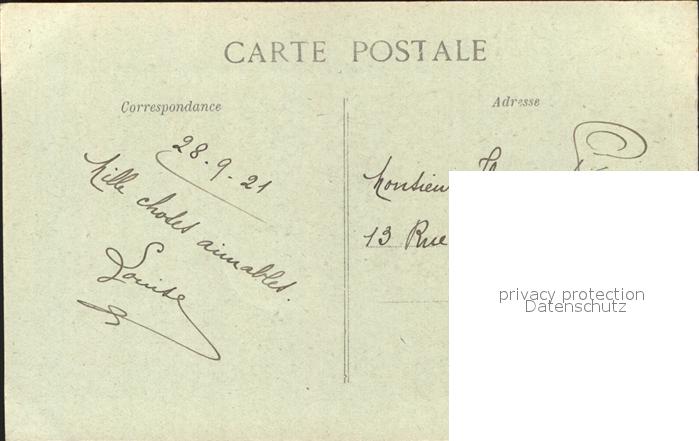 CARTE POSTALE
Correspondance
28.9.21
Mille choses aimables.
Louise
Adresse
Monsieur
13 Rue
privacy protection
Datenschutz